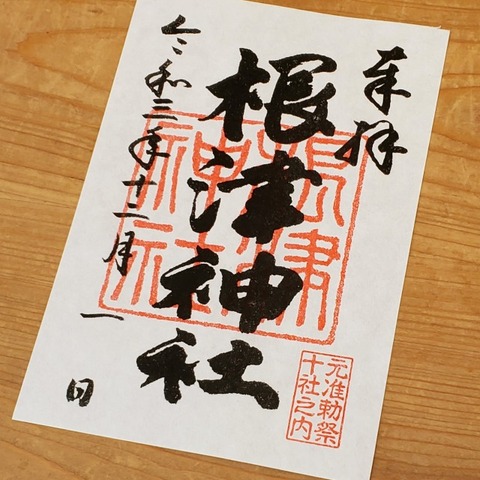 奉拝
根津神社
令和三年十二月 一 日
根津
神社
元准勅祭
十社之内